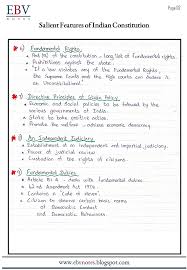 EBV
Page 02
Salient Features of Indian Constitution
6) Fundamental Rights
- Part III of the constitution - long list of fundamental rights.
- Prohibitions against the state.
- If a law violates any of the Fundamental Rights, the Supreme Court and the High Courts can declare it as 'Unconstitutional'.
7) Directive Principles of State Policy
- Economic and social policies to be followed by the various governments in India.
- Provides the welfare - achieve economic democracy
8) An Independent Judiciary
- Establishment of an independent and impartial judiciary.
- Power of judicial review
- Custodian of the rights of citizens.
9) Fundamental Duties
- Article 51-A - deals with fundamental duties
- 42nd Amendment Act 1976
- Citizens - observe certain basic norms of Democratic Conduct and Democratic Behaviours.
www.ebvnotes.blogspot.com